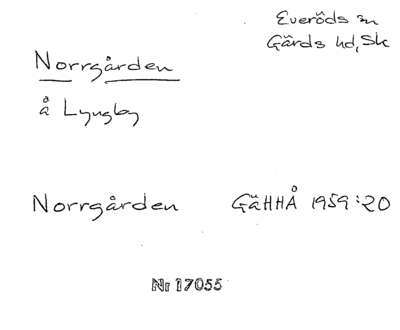 Everöds sn
Gärds hd, Sk
Norrgården
å Lyngby
Norrgården GäHHÅ 1959:20
Nr 17055